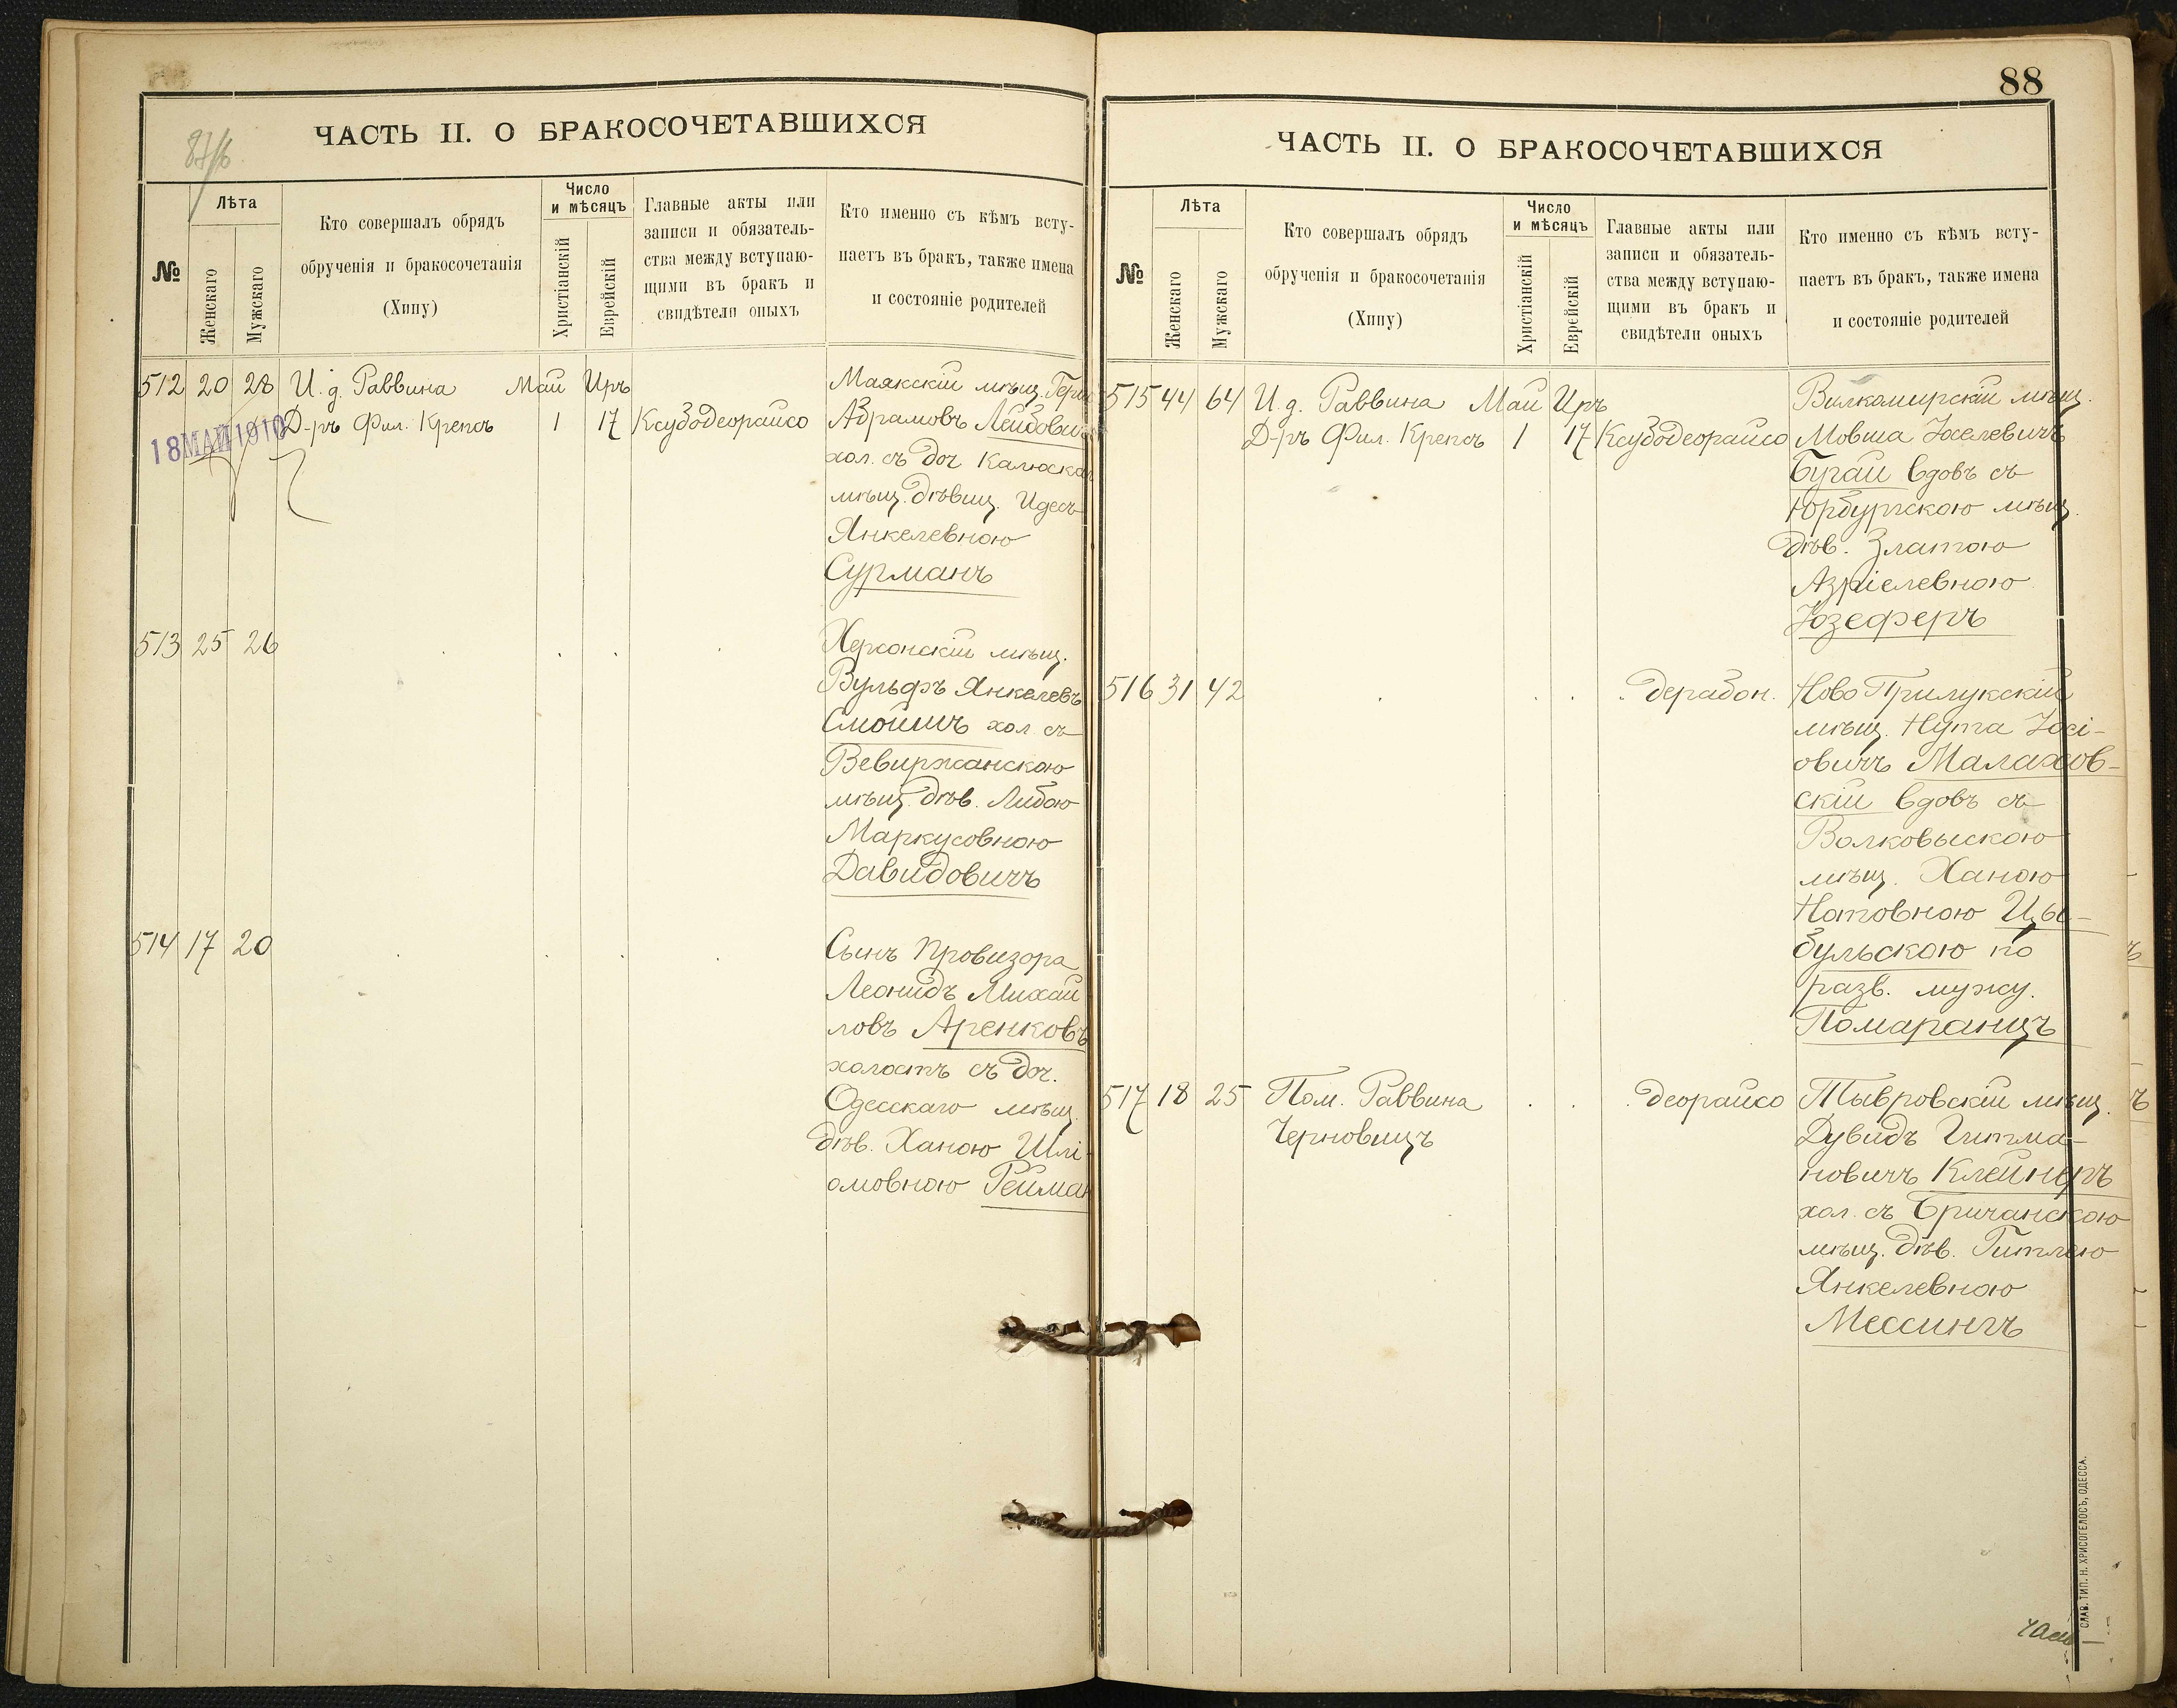 87/б.
ЧАСТЬ II. О БРАКОСОЧЕТАВШИХСЯ
№
Лѣта
Женскаго
Мужскаго
Кто совершалъ обрядъ
обрученія и бракосочетанія
(Хипу)
Число
и мѣсяцъ
Христіанскій
Еврейскій
Главные акты или
записи и обязатель-
ства между вступаю-
щими въ бракъ и
свидѣтели оныхъ
Кто именно съ кѣмъ всту-
паетъ въ бракъ, также имена
и состояніе родителей
512 20 28 И. д. Раввина Май Иръ Маякскій мѣщ. Герш
18 МАЙ 1910 Д-ръ Фил. Крепсъ 1 17 Ксубодеорайсо Абрамовъ Лейбович
хол. съ доч. Калюска
мѣщ. дѣвиц. Идесъ
Янкелевною
Сурманъ
513 25 26 Херсонскій мѣщ.
Вульфъ Янкелевъ
Смоишъ хол. съ
Вевиржанскою
мѣщ. дѣв. Либою
Маркусовною
Давидовичъ
514 17 20 Сынъ Провизора
Леонидъ Михай
ловъ Аренковъ
холостъ съ доч.
Одесскаго мѣщ.
дѣв. Ханою Шлі-
омовною Рейман
88
ЧАСТЬ II. О БРАКОСОЧЕТАВШИХСЯ
№
Лѣта
Женскаго
Мужскаго
Кто совершалъ обрядъ
обрученія и бракосочетанія
(Хипу)
Число
и мѣсяцъ
Христіанскій
Еврейскій
Главные акты или
записи и обязатель-
ства между вступаю-
щими въ бракъ и
свидѣтели оныхъ
Кто именно съ кѣмъ всту-
паетъ въ бракъ, также имена
и состояніе родителей
515 44 64 И. д. Раввина Май Иръ Вилкомирскій мѣщ.
Д-ръ Фил. Крепсъ 1 17 Ксубодеорайсо Мовша Іоселевичъ
Бугай вдовъ съ
Юрбургскою мѣщ.
дѣв. Златою
Азріелевною
Юзеферъ
516 31 42 дерабон. Ново Прилукскій
мѣщ. Нута Іосі-
овичъ Малахов-
скій вдовъ съ
Волковыскою
мѣщ. Ханою
Нотовною Цы-
бульскою по
разв. мужу.
Помаранцъ
517 18 25 Пом. Раввина деорайсо Тывровскій мѣщ.
Черновицъ Дувидъ Гитма-
новичъ Клейнеръ
хол. съ Бричанскою
мѣщ. дѣв. Гитлею
Янкелевною
Мессингъ
СЛАВ. ТИП. Н. ХРИСОГЕЛОСЪ, ОДЕССА.